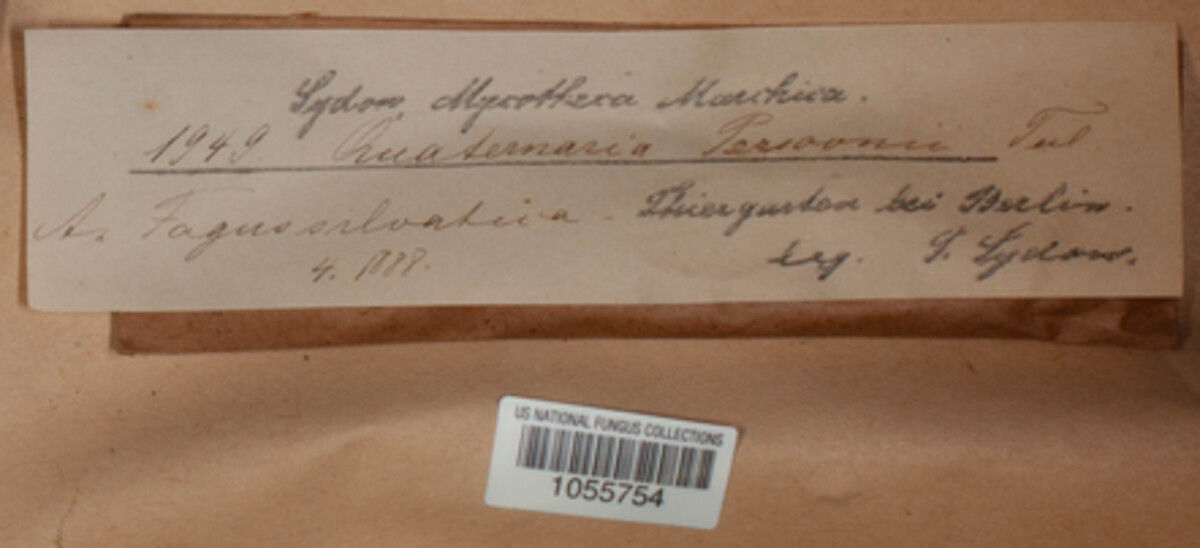 Sydow, Mycotheca Marchica.
1949 Quaternaria Persoonii Tul.
A. Fagus silvatica. Thiergarten bei Berlin.
4. 1888. leg. P. Sydow.
US NATIONAL FUNGUS COLLECTIONS
1055754